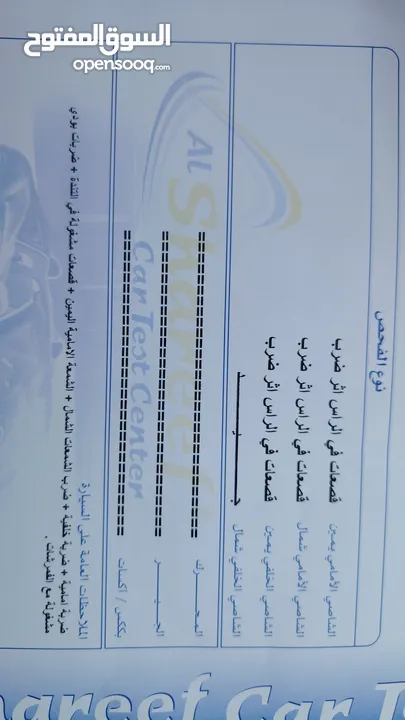 السوق المفتوح
opensooq.com
نوع الفحص
الشاصي الأمامي يمين قصعات في الراس اثر ضرب
الشاصي الأمامي شمال قصعات في الراس اثر ضرب
الشاصي الخلفي يمين قصعات في الراس اثر ضرب
الشاصي الخلفي شمال جـــيـــد
المحــرك ================================
الجــيــر ================================
بكس / اكسات ================================
الملاحظات العامة على السيارة
ضربة امامية + ضربة خلفية + ضرب الشمعات الشمال + الشمعة الامامية اليمين + قصعات مشغولة في التندة + ضربات بودي
مشغولة مع الفرشات .
AL Shareef
Car Test Center
hareef Car T